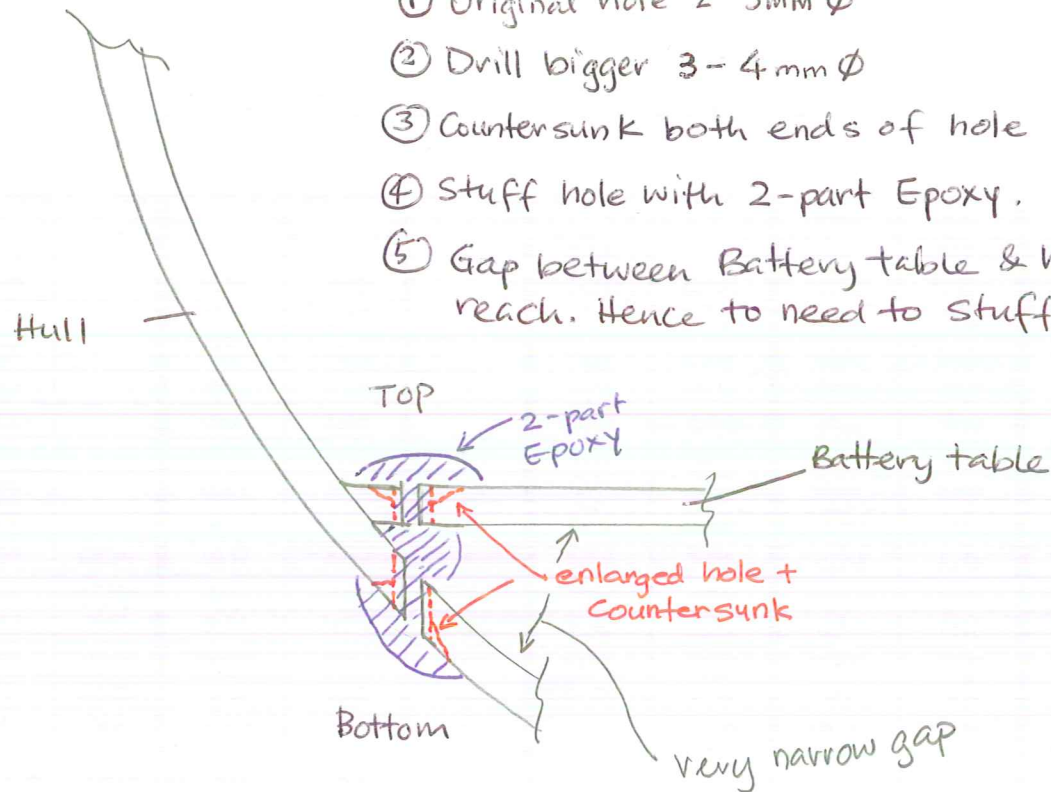 ① Original hole 2 3mm Ø
② Drill bigger 3-4mm Ø
③ Countersunk both ends of hole
④ Stuff hole with 2-part Epoxy.
⑤ Gap between Battery table &
reach. Hence to need to stuff
Hull
TOP
2-part
Epoxy
Battery table
enlarged hole +
Countersunk
Bottom
very narrow gap